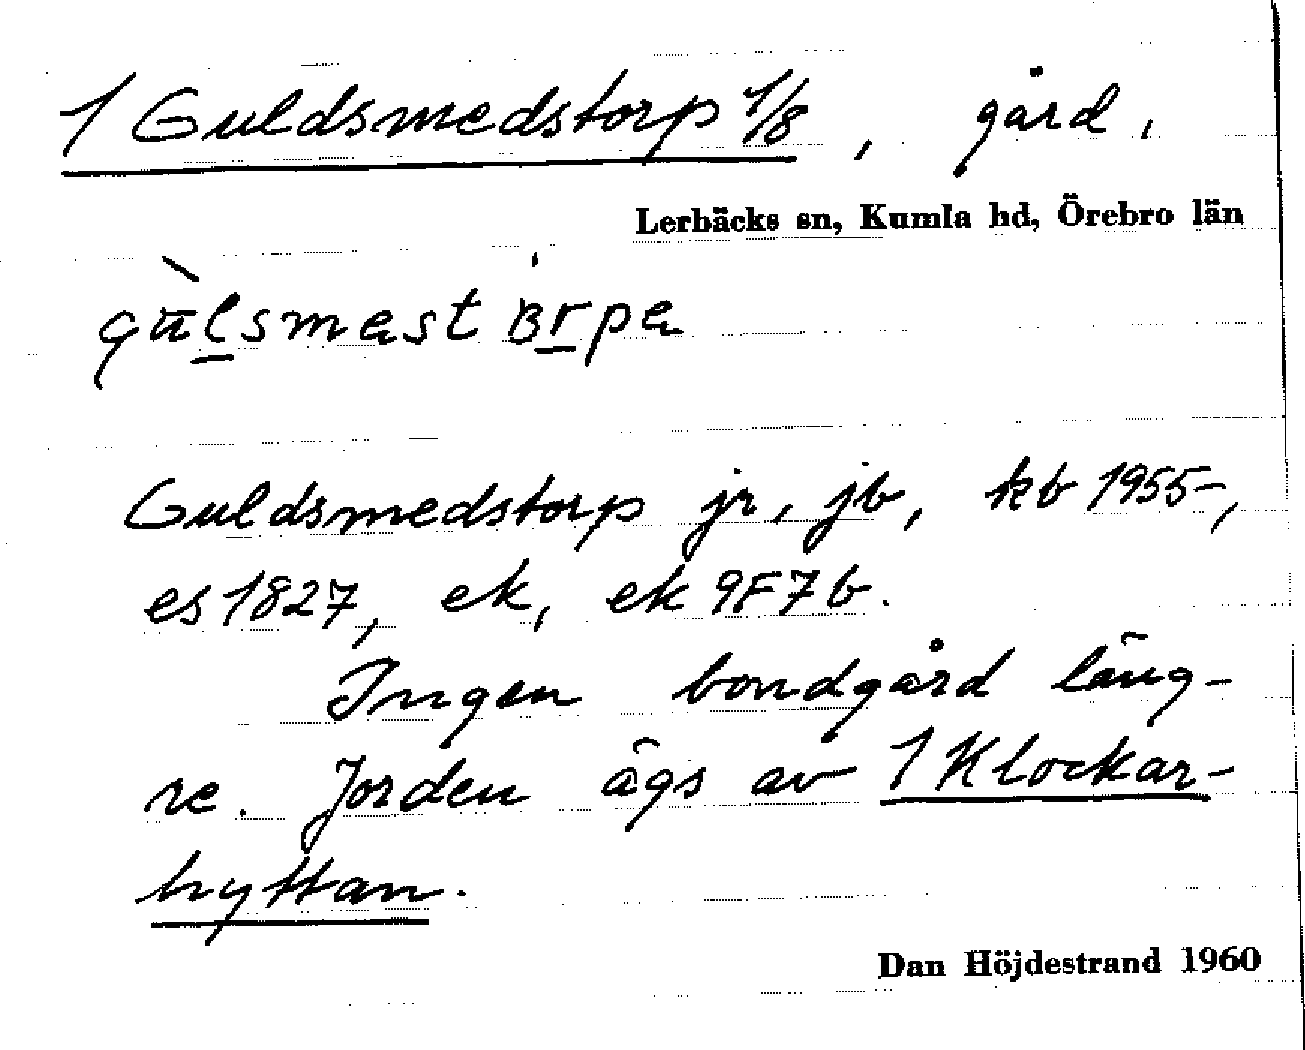 1 Guldsmedstorp 1/8, gård,
Lerbäcks sn, Kumla hd, Örebro län
Guldsmedstorp jr, jb, kb 1955-,
es 1827, ek, ek 9F7b.
Ingen bondgård läng-
re. Jorden ägs av 1 Klockar-
hyttan.
Dan Höjdestrand 1960